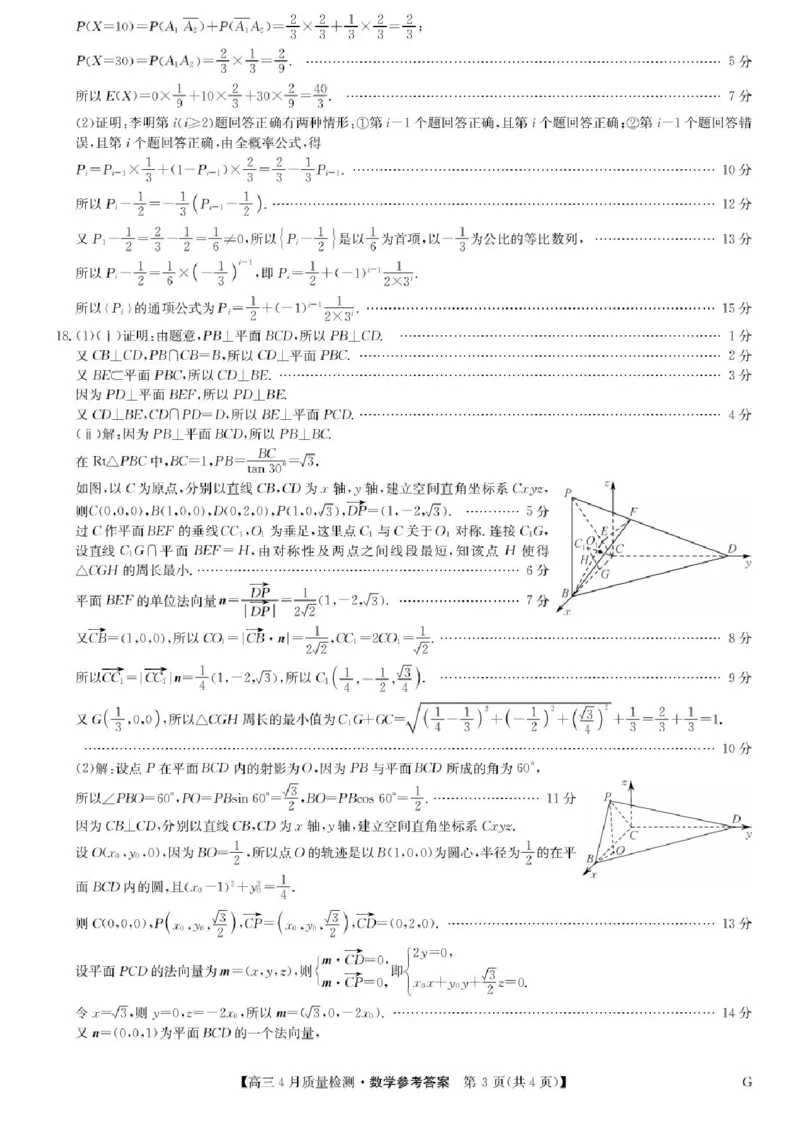 P(X=10)=P(A₁ A̅₂)+P(A̅₁A₂)=2/3×2/3+1/3×2/3=2/3；
P(X=30)=P(A₁A₂)=2/3×1/3=2/9. …… 5分
所以E(X)=0×1/9+10×2/3+30×2/9=40/3. …… 7分
(2)证明:李明第i(i≥2)题回答正确有两种情形:①第i-1个题回答正确,且第i个题回答正确;②第i-1个题回答错
误,且第i个题回答正确,由全概率公式,得
Pᵢ=Pᵢ₋₁×1/3+(1-Pᵢ₋₁)×2/3=2/3-1/3Pᵢ₋₁. …… 10分
所以Pᵢ-1/2=-1/3(Pᵢ₋₁-1/2). …… 12分
又P₁-1/2=2/3-1/2=1/6≠0,所以{Pᵢ-1/2}是以1/6为首项,以-1/3为公比的等比数列, …… 13分
所以Pᵢ-1/2=1/6×(-1/3)^(i-1),即Pᵢ=1/2+(-1)^(i-1) 1/(2×3^i).
所以{Pᵢ}的通项公式为Pᵢ=1/2+(-1)^(i-1) 1/(2×3^i). …… 15分
18.(1)(ⅰ)证明:由题意,PB⊥平面BCD,所以PB⊥CD. …… 1分
又CB⊥CD,PB∩CB=B,所以CD⊥平面PBC. …… 2分
又BE⊂平面PBC,所以CD⊥BE. …… 3分
因为PD⊥平面BEF,所以PD⊥BE.
又CD⊥BE,CD∩PD=D,所以BE⊥平面PCD. …… 4分
(ⅱ)解:因为PB⊥平面BCD,所以PB⊥BC.
在Rt△PBC中,BC=1,PB=BC/tan 30°=√3.
如图,以C为原点,分别以直线CB,CD为x轴,y轴,建立空间直角坐标系Cxyz,
则C(0,0,0),B(1,0,0),D(0,2,0),P(1,0,√3),DP→=(1,-2,√3). …… 5分
过C作平面BEF的垂线CC₁,O₁为垂足,这里点C₁与C关于O₁对称.连接C₁G,
设直线C₁G∩平面BEF=H,由对称性及两点之间线段最短,知该点H使得
△CGH的周长最小. …… 6分
平面BEF的单位法向量n=DP→/|DP→|=1/(2√2)(1,-2,√3). …… 7分
又CB→=(1,0,0),所以CO₁=|CB→·n|=1/(2√2),CC₁=2CO₁=1/√2. …… 8分
所以CC₁→=|CC₁→|n=1/4(1,-2,√3),所以C₁(1/4,-1/2,√3/4). …… 9分
又G(1/3,0,0),所以△CGH周长的最小值为C₁G+GC=√((1/4-1/3)²+(-1/2)²+(√3/4)²)+1/3=2/3+1/3=1.
…… 10分
z
P
F
E
C₁
O₁
C
D
y
H
G
B
x
(2)解:设点P在平面BCD内的射影为O,因为PB与平面BCD所成的角为60°,
所以∠PBO=60°,PO=PBsin 60°=√3/2,BO=PBcos 60°=1/2. …… 11分
因为CB⊥CD,分别以直线CB,CD为x轴,y轴,建立空间直角坐标系Cxyz.
设O(x₀,y₀,0),因为BO=1/2,所以点O的轨迹是以B(1,0,0)为圆心,半径为1/2的在平
面BCD内的圆,且(x₀-1)²+y₀²=1/4.
z
P
D
C
y
O
B
x
则C(0,0,0),P(x₀,y₀,√3/2),CP→=(x₀,y₀,√3/2),CD→=(0,2,0). …… 13分
设平面PCD的法向量为m=(x,y,z),则{m·CD→=0, m·CP→=0, 即{2y=0, x₀x+y₀y+√3/2z=0.
令x=√3,则y=0,z=-2x₀,所以m=(√3,0,-2x₀). …… 14分
又n=(0,0,1)为平面BCD的一个法向量,
【高三4月质量检测·数学参考答案 第3页(共4页)】 G